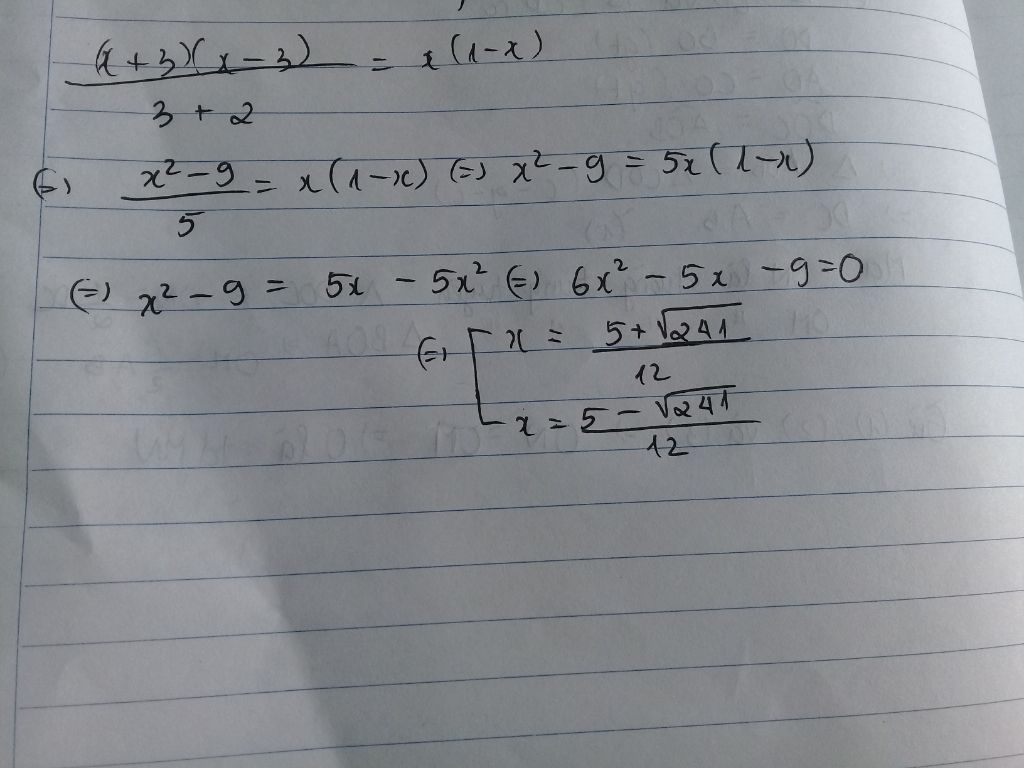 (x+3)(x-3) / 3+2 = x(1-x)
(=) x²-9 / 5 = x(1-x) (=) x²-9 = 5x(1-x)
(=) x²-9 = 5x - 5x² (=) 6x² - 5x - 9=0
(=) [ x = 5+√241 / 12
x = 5-√241 / 12